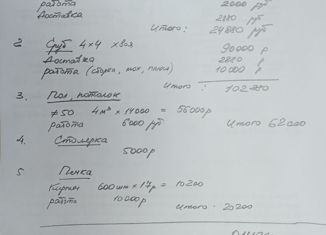 работа 2000 руб
Доставка 2880 руб
Итого: 24880 руб
2 Сруб 4x4 хвоя 90000 р
Доставка 2880 р
работа (сборка, мох, пакля) 10000 р
Итого: 102880
3. Пол, потолок
≠50 4м³ x 14000 = 56000р
работа 6000 руб Итого 62000
4. Столярка
5000р
5 Печка
Кирпич 600шт x 17р = 10200
работа 10000р Итого - 20200